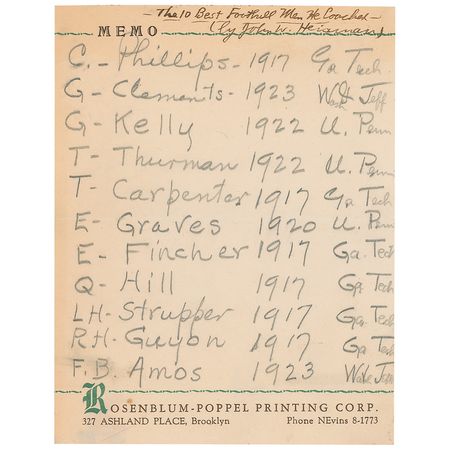 - The 10 Best Football Men He Coached -
MEMO (By John W. Heisman)
C. - Phillips - 1917 Ga Tech.
G - Clements - 1923 Wash & Jeff
G - Kelly 1922 U. Penn
T - Thurman 1922 U. Penn
T - Carpenter 1917 Ga Tech
E - Graves 1920 U. Penn
E - Fincher 1917 Ga. Tech
Q - Hill 1917 Ga. Tech
LH - Strupper 1917 Ga. Tech
RH - Guyon 1917 Ga Tech
F. B. Amos 1923 Jeff
ROSENBLUM-POPPEL PRINTING CORP.
327 ASHLAND PLACE, Brooklyn Phone NEvins 8-1773